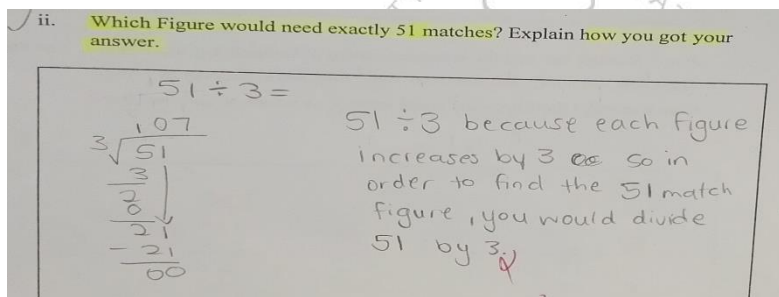 ii. Which Figure would need exactly 51 matches? Explain how you got your
answer.
51 ÷ 3 =
107
3 51
3
2
0
21
- 21
00
51 ÷ 3 because each figure
increases by 3 so in
order to find the 51 match
figure, you would divide
51 by 3.